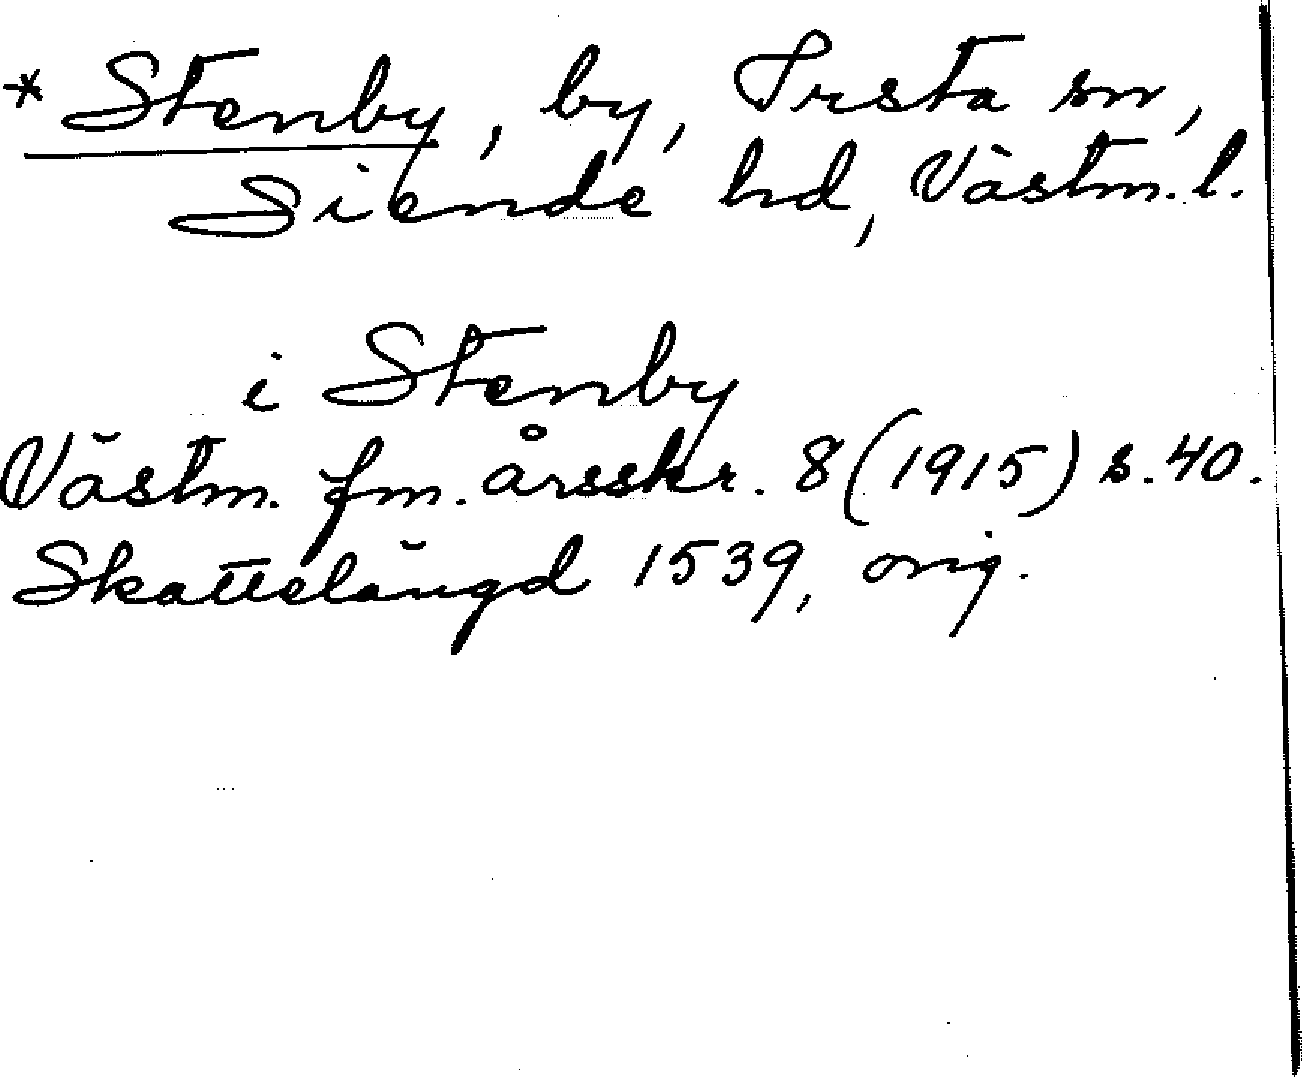 * Stenby, by, Irsta sn,
Siende hd, Västm. l.
i Stenby
Västm. fm. årsskr. 8 (1915) s. 40.
Skattelängd 1539, orig.